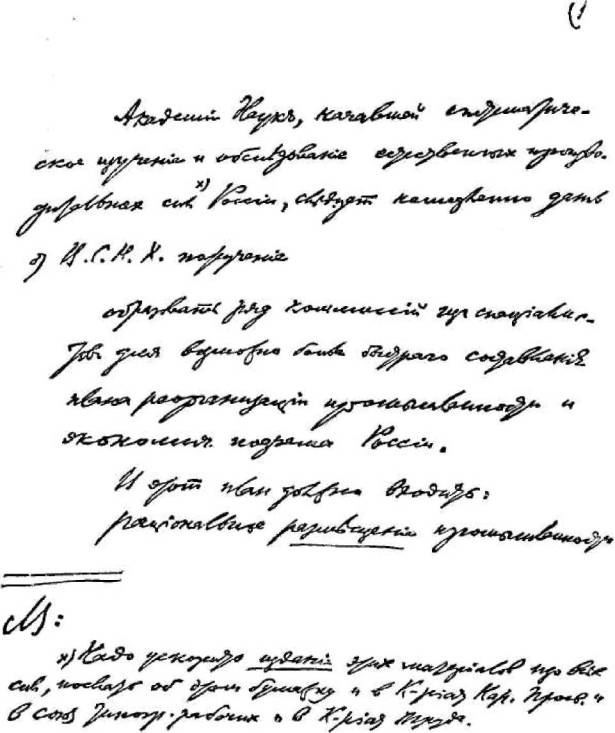 (1
Академiи Наукъ, начавшей систематиче-
ское изученiе и обслѣдованiе естественных произво-
дительных сил х) Россiи, слѣдует немедленно дать
от В.С.Н.Х. порученiе
образовать ряд комиссiй из спецiалис-
тов для возможно более быстраго составленiя
плана реорганизацiи промышленности и
экономич. подъема Россiи.
В этот план должно входить:
рацiональное размѣщенiе промышленности
NB:
х) Надо ускорить изданiе этих матерiалов изо всѣх
сил, послать об этом бумажку и в К-рiат Нар. Просв. и
в союз типогр. рабочих и в К-рiат труда.